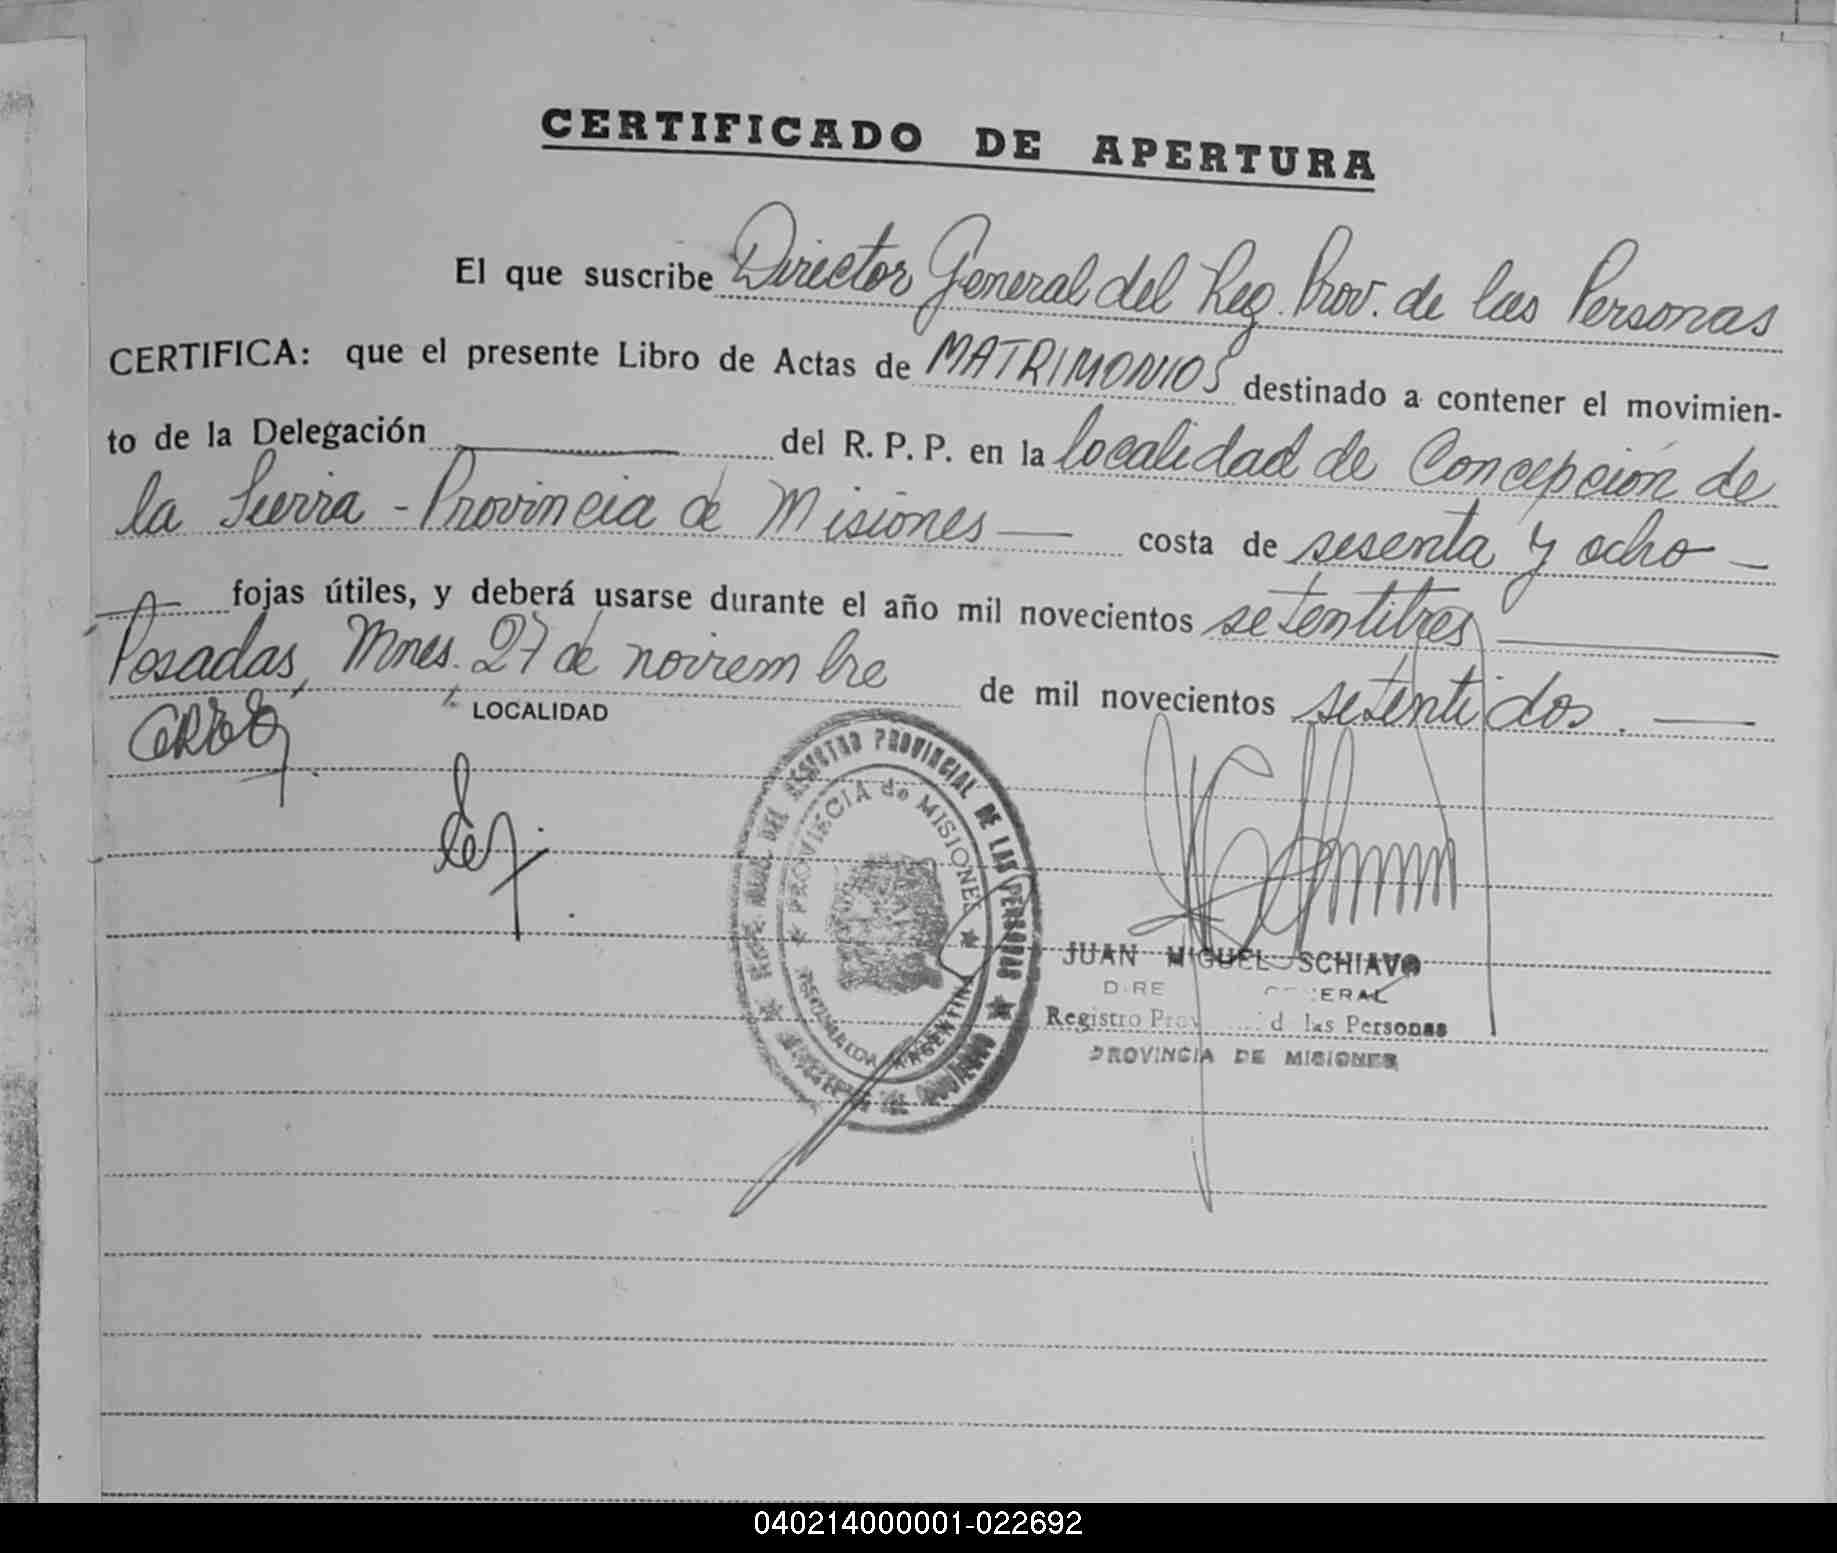 CERTIFICADO DE APERTURA
El que suscribe Director General del Reg. Prov. de las Personas
CERTIFICA: que el presente Libro de Actas de MATRIMONIOS destinado a contener el movimien-
to de la Delegación del R. P. P. en la localidad de Concepción de
la Sierra - Provincia de Misiones — costa de sesenta y ocho —
— fojas útiles, y deberá usarse durante el año mil novecientos setentitres —
Posadas, Mnes. 27 de noviembre de mil novecientos setentidos. —
LOCALIDAD
DEL REGISTRO PROVINCIAL DE LAS PERSONAS
PROVINCIA de MISIONES
ARGENTINA
JUAN MIGUEL SCHIAVO
Registro las Personas
PROVINCIA DE MISIONES
040214000001-022692